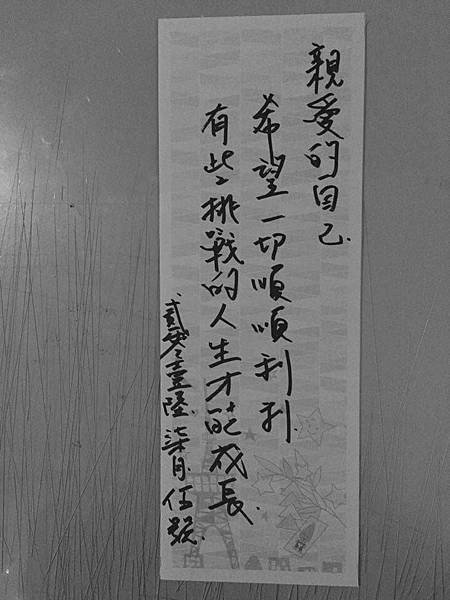 親愛的自己.
希望一切順順利利.
有些挑戰的人生才能成長.
貳零壹陸.柒月.伍號.